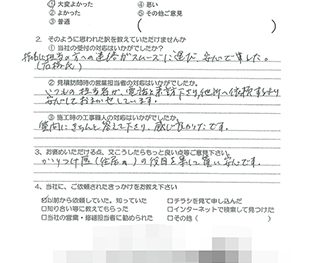 ①大変よかった ④悪い
②よかった ⑤その他ご意見
③普通 ( )
2. そのように思われた訳を教えていただけませんか
①当社の受付の対応はいかがでしたか?
担当の方への連絡がスムーズに運び、安心でした。
②見積訪問時の営業担当者の対応はいかがでしたか。
いつもの担当者が、
安心しておまかせしています。
③施工時の工事職人の対応はいかがでしたか?
質問にきちんと答えて下さり、感じ良かったです。
3. お褒めいただける点、又こうしたらもっと良い点等ご意見下さい。
かかりつけ医(住居の)の役目を果して貰い安心です。
4. 当社に、ご依頼されたきっかけをお教え下さい
☑以前から依頼していた。知っていた □チラシを見て申し込んだ
□知り合い等に教えてもらった □インターネットで検索して見つけた
□当社の営業・修繕担当者に勧められた □その他( )